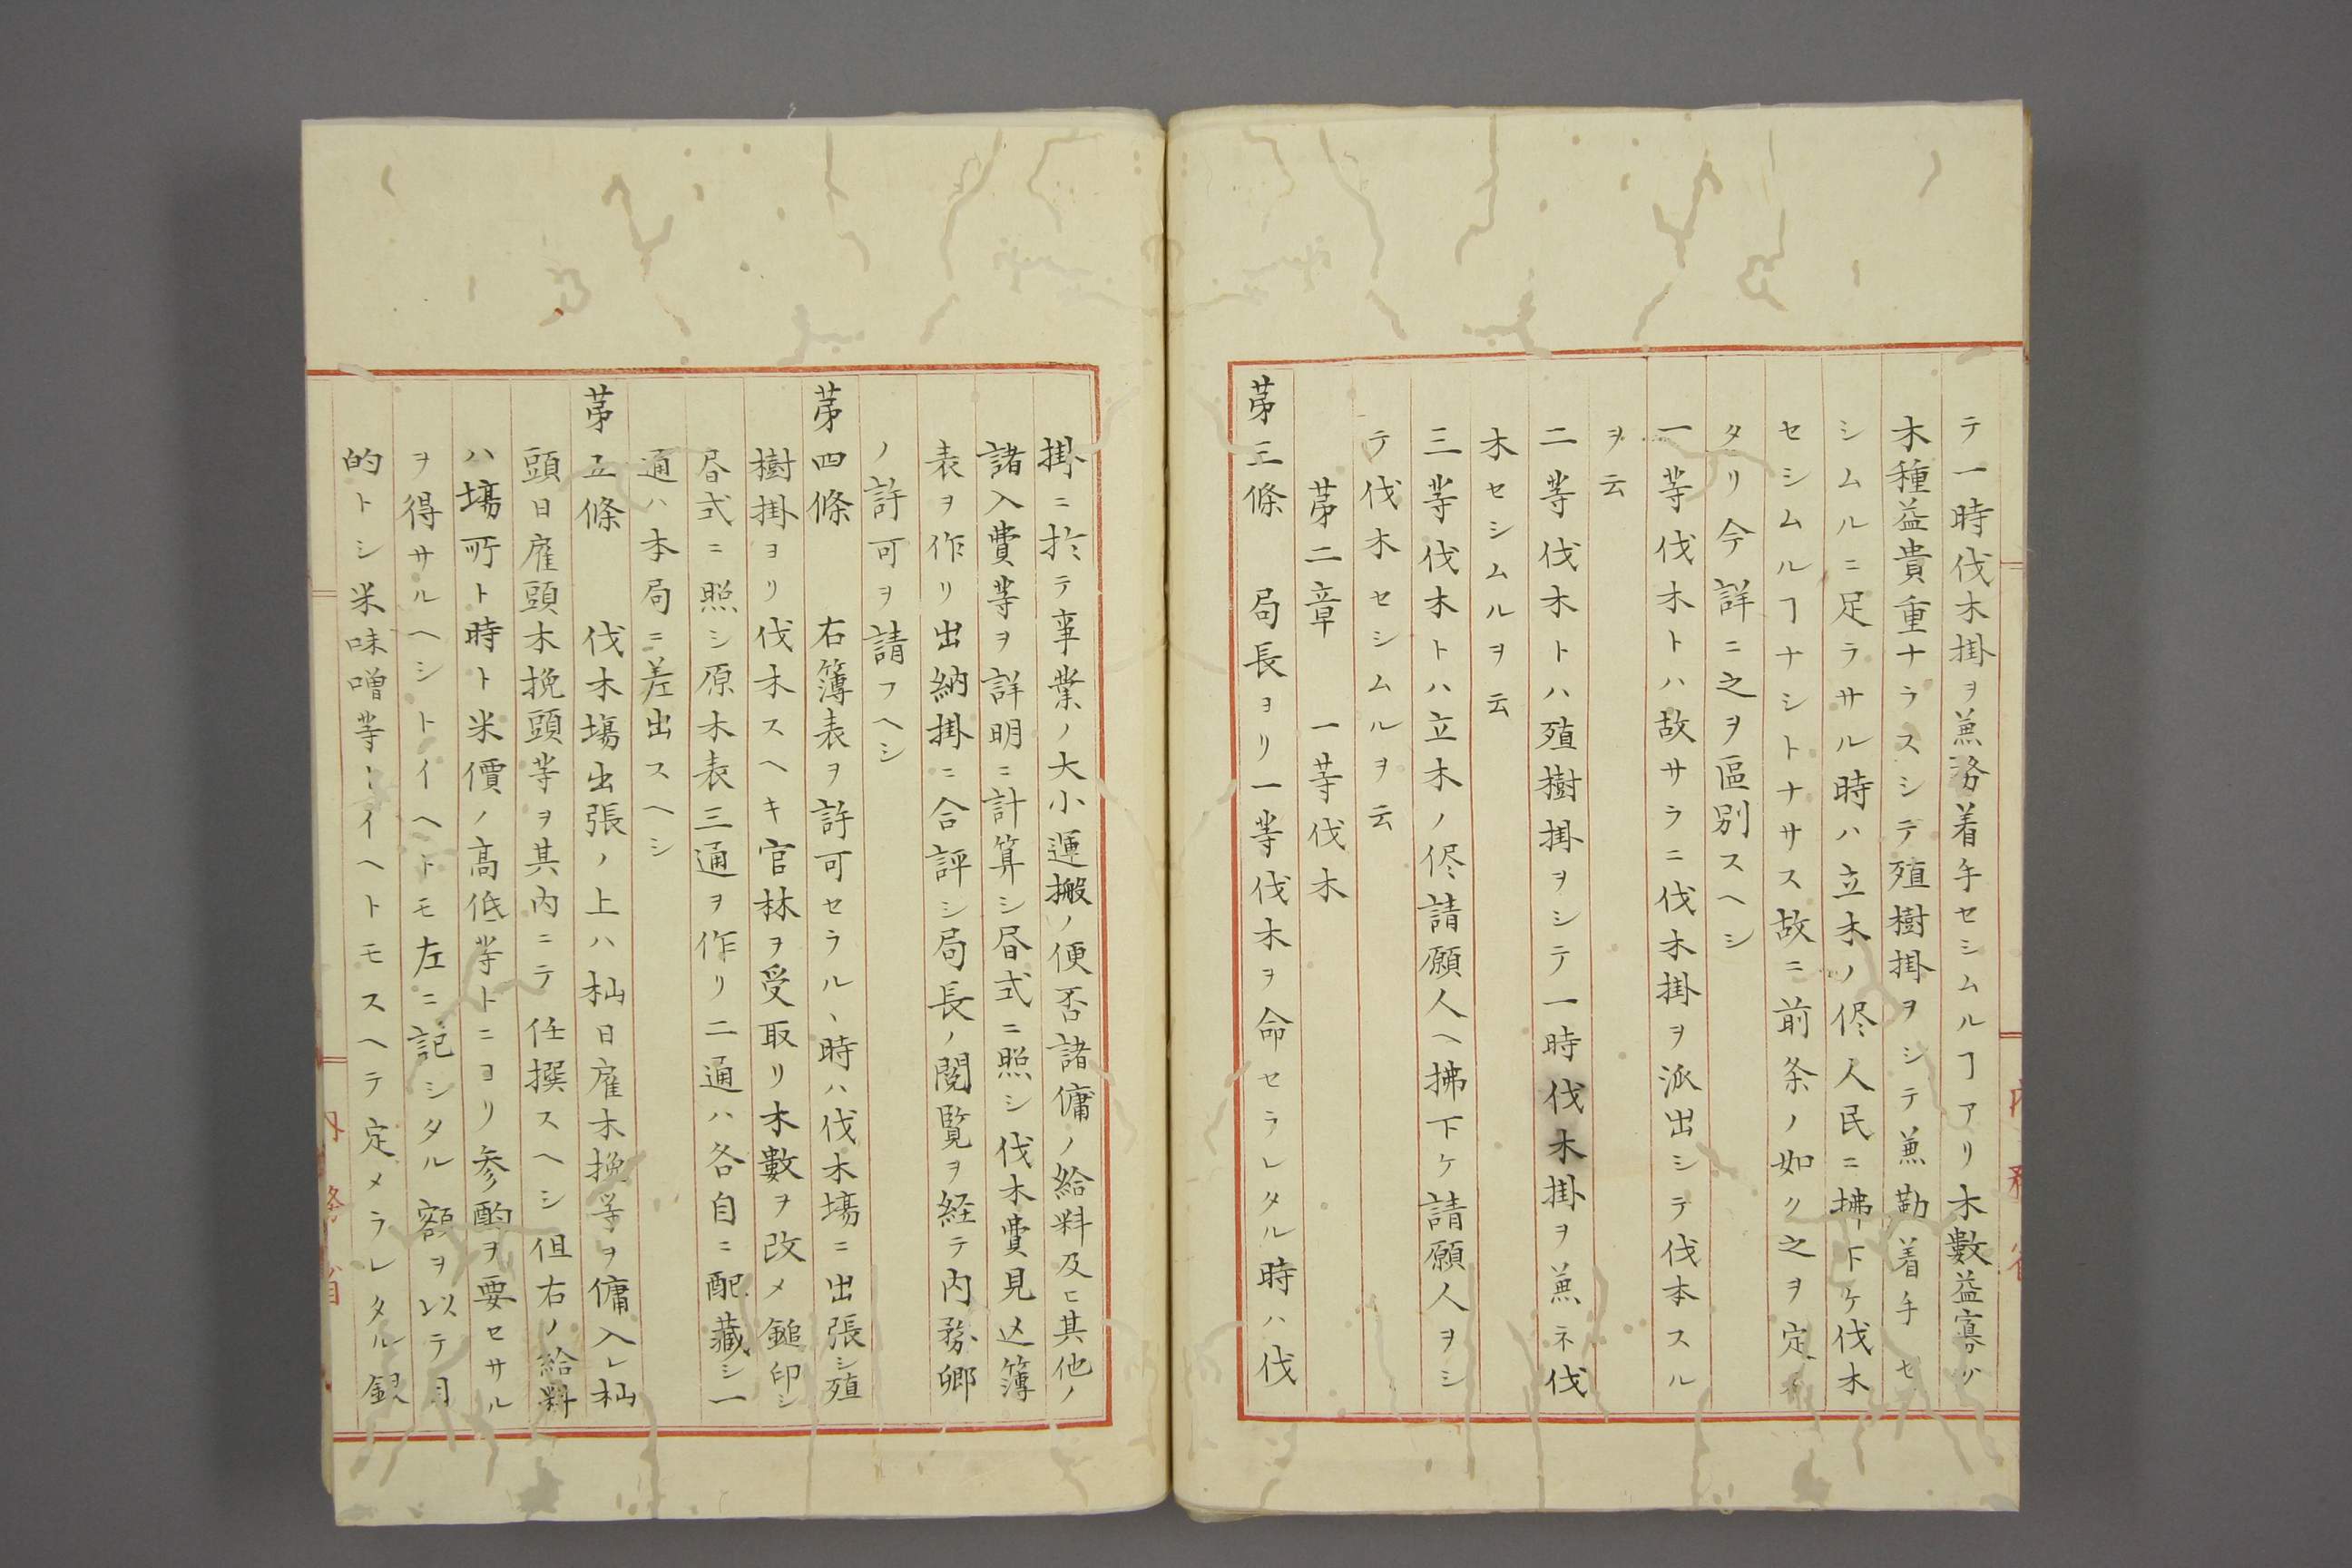 テ一時伐木掛ヲ兼務着手セシムルヿアリ木數益寡ク
木種益貴重ナラスシテ殖樹掛ヲシテ兼勤着手セ
シムルニ足ラサル時ハ立木ノ侭人民ニ拂下ケ伐木
セシムルヿナシトナサス故ニ前条ノ如ク之ヲ定メ
タリ今詳ニ之ヲ區別スヘシ
一等伐木トハ故サラニ伐木掛ヲ派出シテ伐木スル
ヲ云
二等伐木トハ殖樹掛ヲシテ一時伐木掛ヲ兼ネ伐
木セシムルヲ云
三等伐木トハ立木ノ侭請願人ヘ拂下ケ請願人ヲシ
テ伐木セシムルヲ云
第二章 一等伐木
第三條 局長ヨリ一等伐木ヲ命セラレタル時ハ伐
掛ニ於テ事業ノ大小運搬ノ便否諸傭ノ給料及ヒ其他ノ
諸入費等ヲ詳明ニ計算シ昼式ニ照シ伐木費見込簿
表ヲ作リ出納掛ニ合評シ局長ノ閲覧ヲ経テ内務卿
ノ許可ヲ請フヘシ
第四條 右簿表ヲ許可セラルヽ時ハ伐木塲ニ出張シ殖
樹掛ヨリ伐木スヘキ官林ヲ受取リ木數ヲ改メ鎚印シ
昼式ニ照シ原木表三通ヲ作リ二通ハ各自ニ配藏シ一
通ハ本局ニ差出スヘシ
第五條 伐木塲出張ノ上ハ杣日雇木挽等ヲ傭入レ杣
頭日雇頭木挽頭等ヲ其内ニテ任撰スヘシ但右ノ給料
ハ塲所ト時ト米價ノ高低等トニヨリ参酌ヲ要セサル
ヲ得サルヘシトイヘトモ左ニ記シタル額ヲ以テ目
的トシ米味噌等トイヘトモスヘテ定メラレタル銀
内務省
内務省